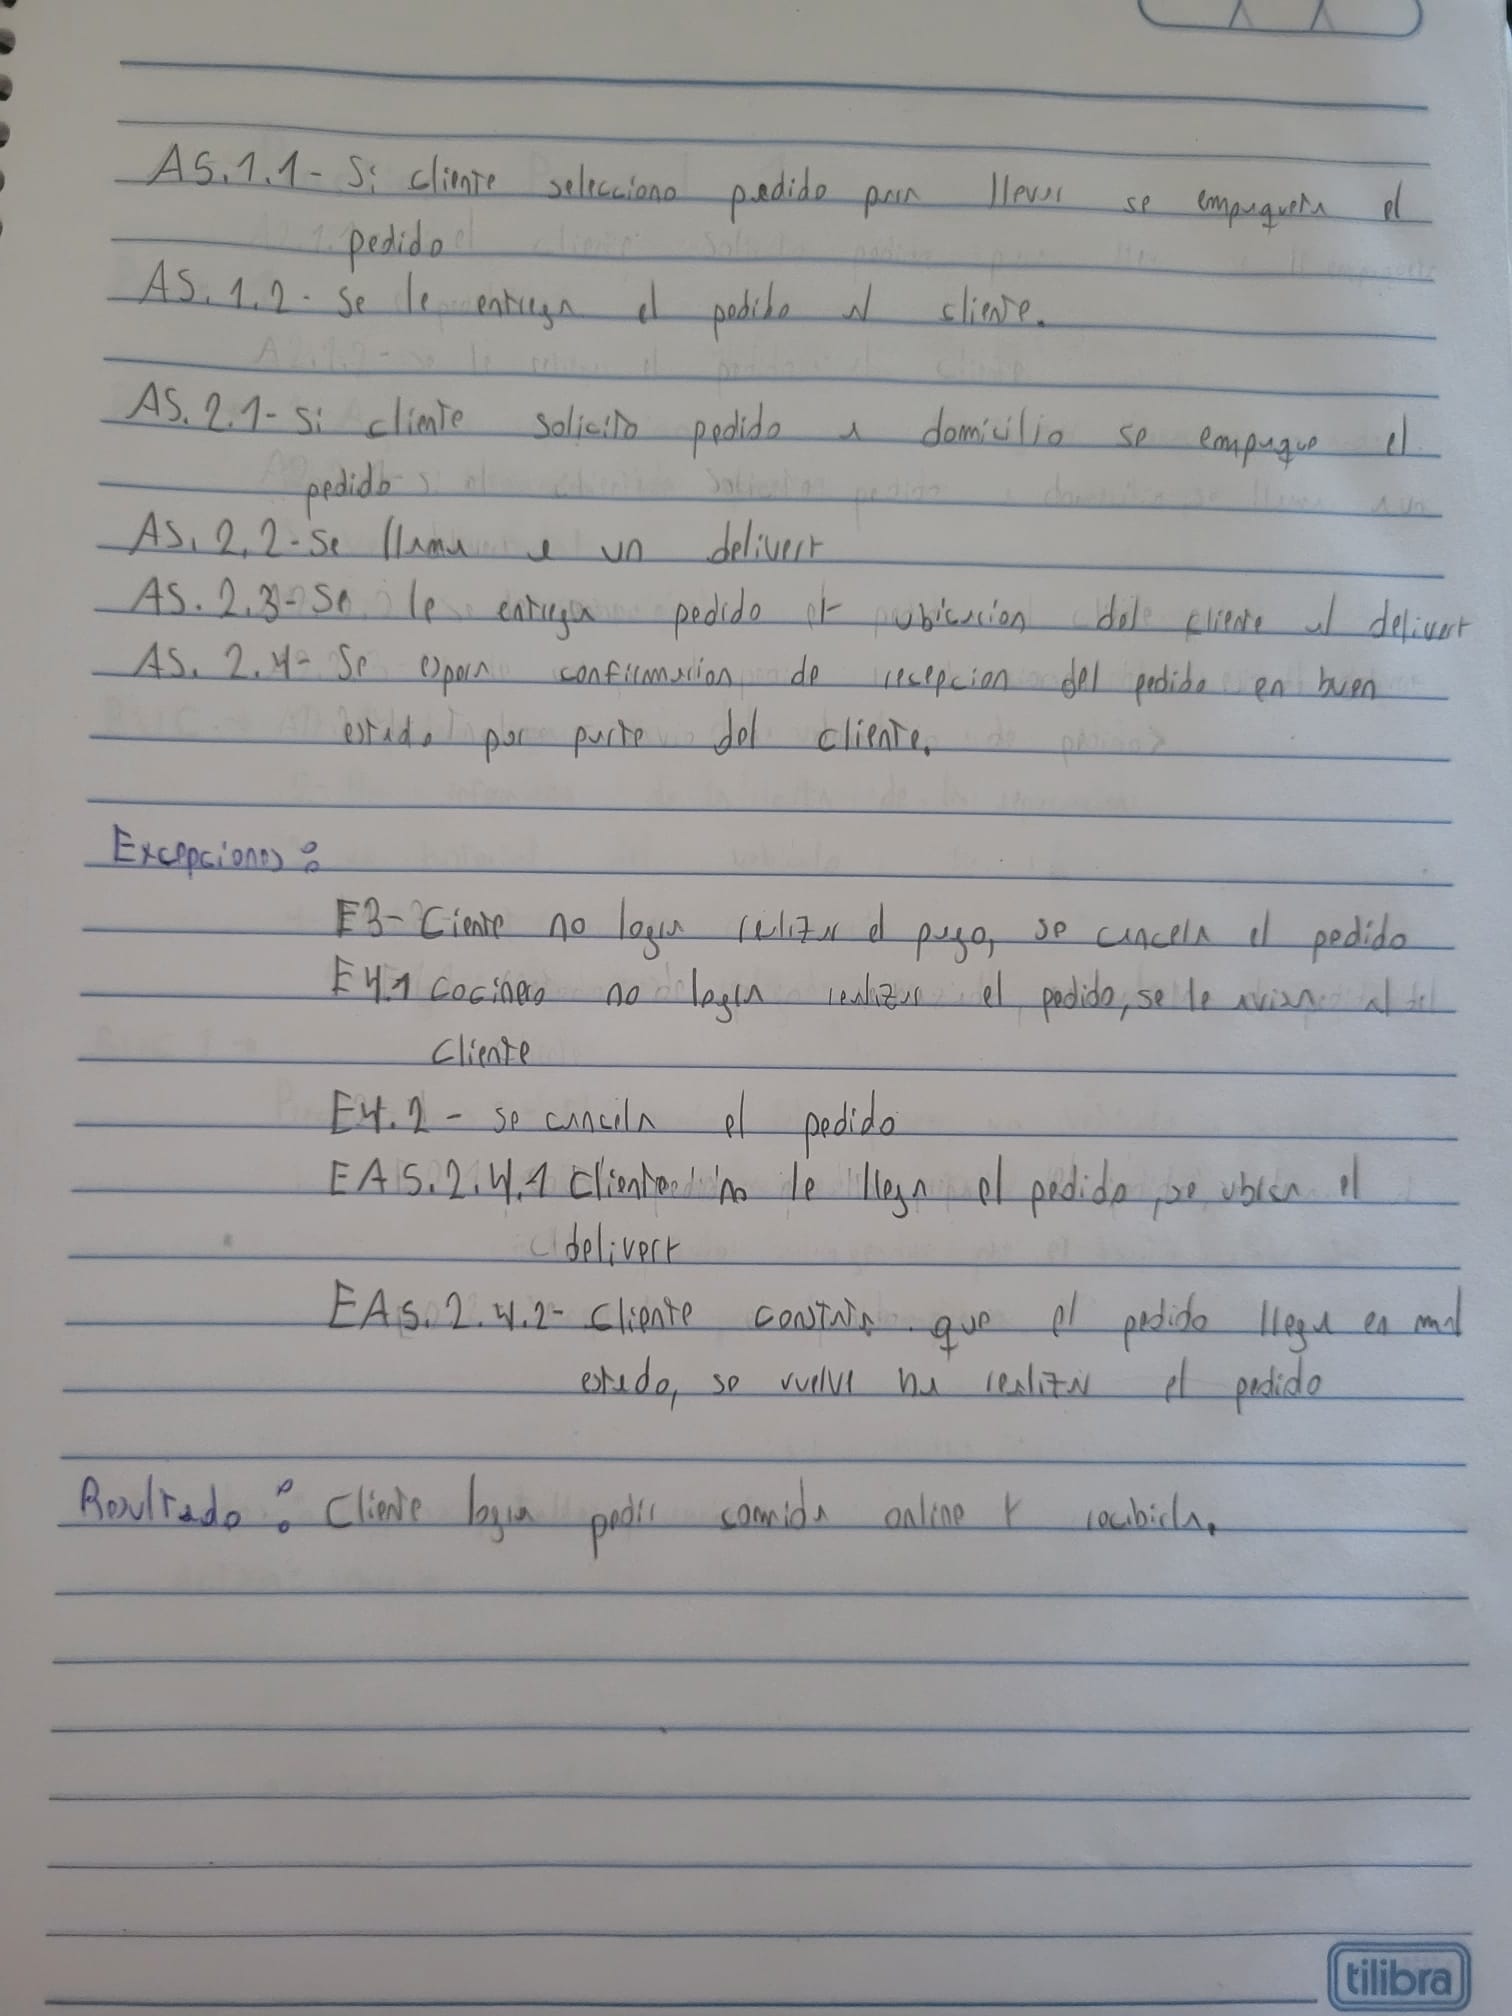 A5.1.1- Si cliente selecciono pedido para llevar se empaqueta el
pedido
A5.1.2- se le entrega el pedido al cliente.
A5.2.1- Si cliente solicito pedido a domicilio se empaque el
pedido
A5.2.2- Se llama a un delivery
A5.2.3- Se le entrega pedido y ubicacion del cliente al delivery
A5.2.4- Se espera confirmacion de recepcion del pedido en buen
estado por parte del cliente.
Excepciones:
E3- Ciente no logra realizar el pago, se cancela el pedido
E4.1 Cocinero no logra realizar el pedido, se le avisa al
cliente
E4.2 - se cancela el pedido
EA5.2.4.1 Cliente no le llega el pedido, se ubica el
delivery
EA5.2.4.2- Cliente constata que el pedido llega en mal
estado, se vuelve ha realizar el pedido
Resultado: Cliente logra pedir comida online y recibirla.
tilibra